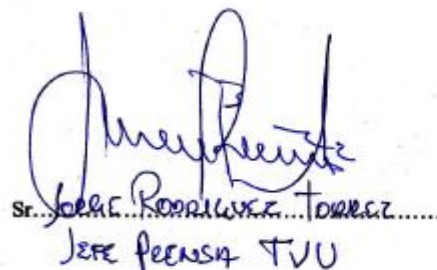 Sr. JORGE RODRIGUEZ TORREZ
JEFE PRENSA TVU